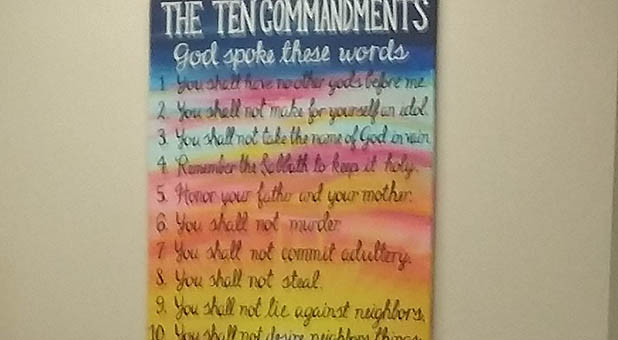 THE TEN COMMANDMENTS
God spoke these words
1. You shall have no other gods before me.
2. You shall not make for yourself an idol.
3. You shall not take the name of God in vain
4. Remember the Sabbath to keep it holy.
5. Honor your father and your mother.
6. You shall not murder
7 You shall not commit adultery.
8. You shall not steal.
9. You shall not lie against neighbors.
10. You shall not desire neighbors things.